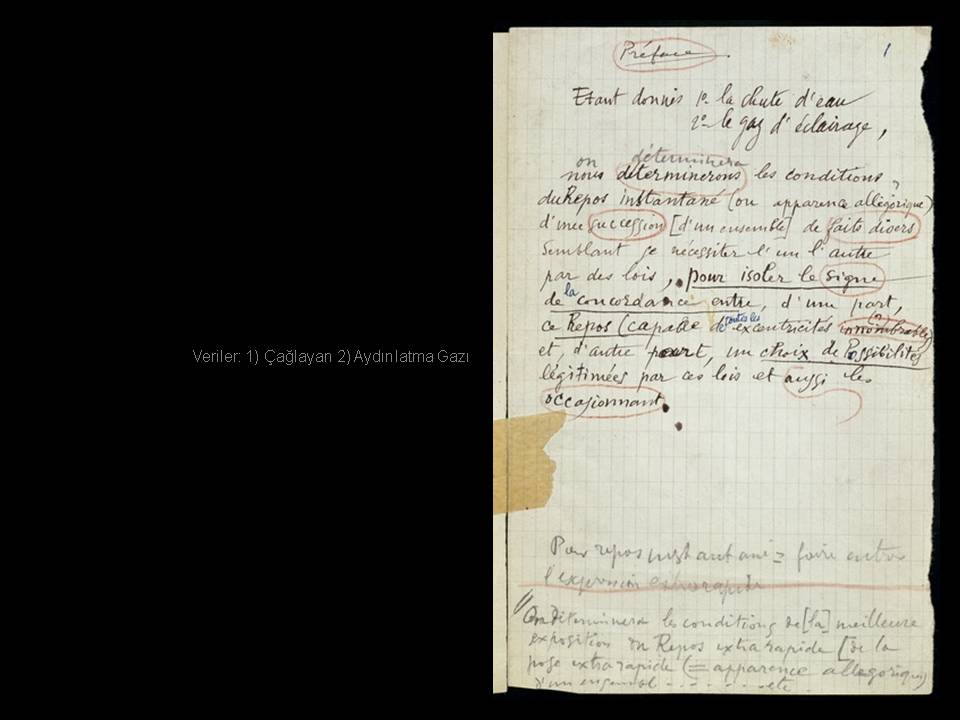 Veriler: 1) Çağlayan 2) Aydınlatma Gazı
Préface
1
Etant donnés 1º la chute d'eau
2º le gaz d'éclairage,
on déterminera
nous déterminerons les conditions
du Repos instantané (ou apparence allégorique)
d'une succession [d'un ensemble] de faits divers
semblant se nécessiter l'un l'autre
par des lois, pour isoler le signe
la
de concordance entre, d'une part,
toutes les (?)
ce Repos (capable d' excentricités innombrables)
et, d'autre part, un choix de Possibilités
légitimées par ces lois et aussi les
occasionnant.
Pour repos instantané = faire entrer
l'expression extra rapide
On Déterminera les conditions de [la] meilleure
exposition du Repos extra rapide [de la
pose extra rapide (= apparence allégorique)
d'un ensemble - - - - - - - etc.